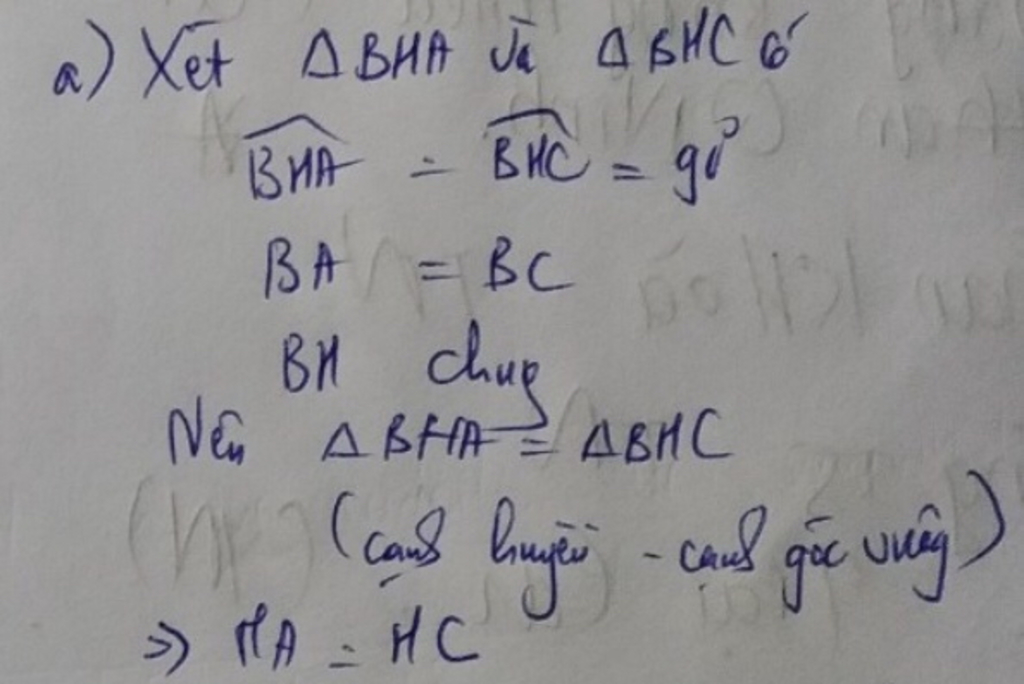 a) Xét Δ BHA và Δ BHC có
BHA = BHC = 90°
BA = BC
BH chung
Nên Δ BHA = Δ BHC
(cạnh huyền - cạnh góc vuông)
=> HA = HC